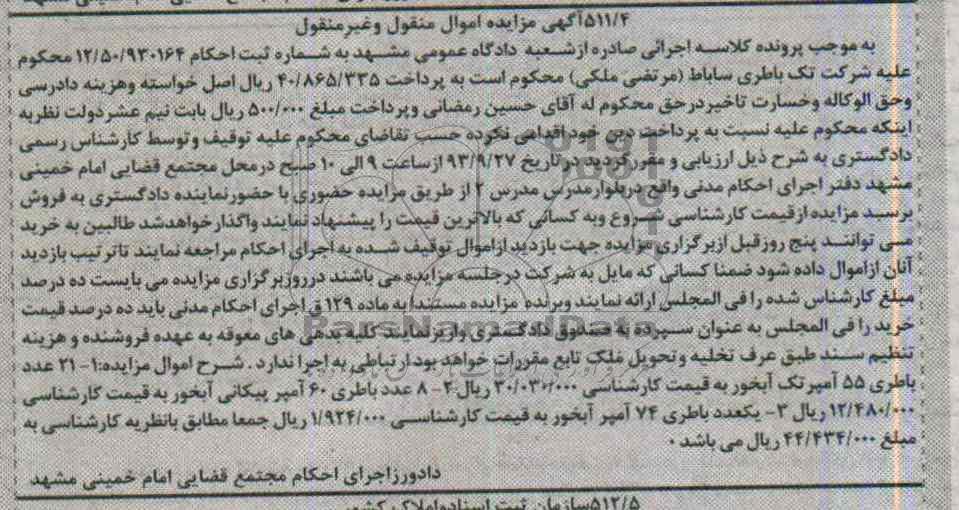 ۵۱۱/۴آگهی مزایده اموال منقول وغیرمنقول
به موجب پرونده کلاسه اجرائی صادره ازشعبه دادگاه عمومی مشهد به شماره ثبت احکام ۱۲/۵۰/۹۳۰۱۶۴ محکوم
علیه شرکت تک باطری ساباط (مرتضی ملکی) محکوم است به پرداخت ۴۰/۸۶۵/۳۳۵ ریال اصل خواسته وهزینه دادرسی
وحق الوکاله وخسارت تاخیردرحق محکوم له آقای حسین رمضانی وپرداخت مبلغ ۵۰۰/۰۰۰ ریال بابت نیم عشردولت نظربه
اینکه محکوم علیه نسبت به پرداخت دین خوداقدامی نکرده حسب تقاضای محکوم علیه توقیف وتوسط کارشناس رسمی
دادگستری به شرح ذیل ارزیابی و مقررگردید درتاریخ ۹۳/۹/۲۷ ازساعت ۹ الی ۱۰ صبح درمحل مجتمع قضایی امام خمینی
مشهد دفتر اجرای احکام مدنی واقع دربلوارمدرس مدرس ۲ از طریق مزایده حضوری با حضورنماینده دادگستری به فروش
برسد مزایده ازقیمت کارشناسی شروع وبه کسانی که بالاترین قیمت را پیشنهاد نمایند واگذارخواهدشد طالبین به خرید
می توانند پنج روزقبل ازبرگزاری مزایده جهت بازدید ازاموال توقیف شده به اجرای احکام مراجعه نمایند تاترتیب بازدید
آنان ازاموال داده شود ضمنا کسانی که مایل به شرکت درجلسه مزایده می باشند درروزبرگزاری مزایده می بایست ده درصد
مبلغ کارشناس شده را فی المجلس ارائه نمایند وبرنده مزایده مستندا به ماده ۱۲۹ ق اجرای احکام مدنی باید ده درصد قیمت
خرید را فی المجلس به عنوان سپرده به صندوق دادگستری واریزنمایند کلیه بدهی های معوقه به عهده فروشنده و هزینه
تنظیم سند طبق عرف تخلیه وتحویل ملک تابع مقررات خواهد بود ارتباطی به اجرا ندارد . شرح اموال مزایده:۱- ۲۱ عدد
باطری ۵۵ آمپرتک آبخور به قیمت کارشناسی ۳۰/۰۳۰/۰۰۰ ریال ۲- ۸ عدد باطری ۶۰ آمپر پیکانی آبخور به قیمت کارشناسی
۱۲/۴۸۰/۰۰۰ ریال ۳- یکعدد باطری ۷۴ آمپر آبخور به قیمت کارشناسی ۱/۹۲۴/۰۰۰ ریال جمعا مطابق بانظریه کارشناسی به
مبلغ ۴۴/۴۳۴/۰۰۰ ریال می باشد .
دادورزاجرای احکام مجتمع قضایی امام خمینی مشهد
۵۱۲/۵سازمان ثبت اسنادواملاک کشور